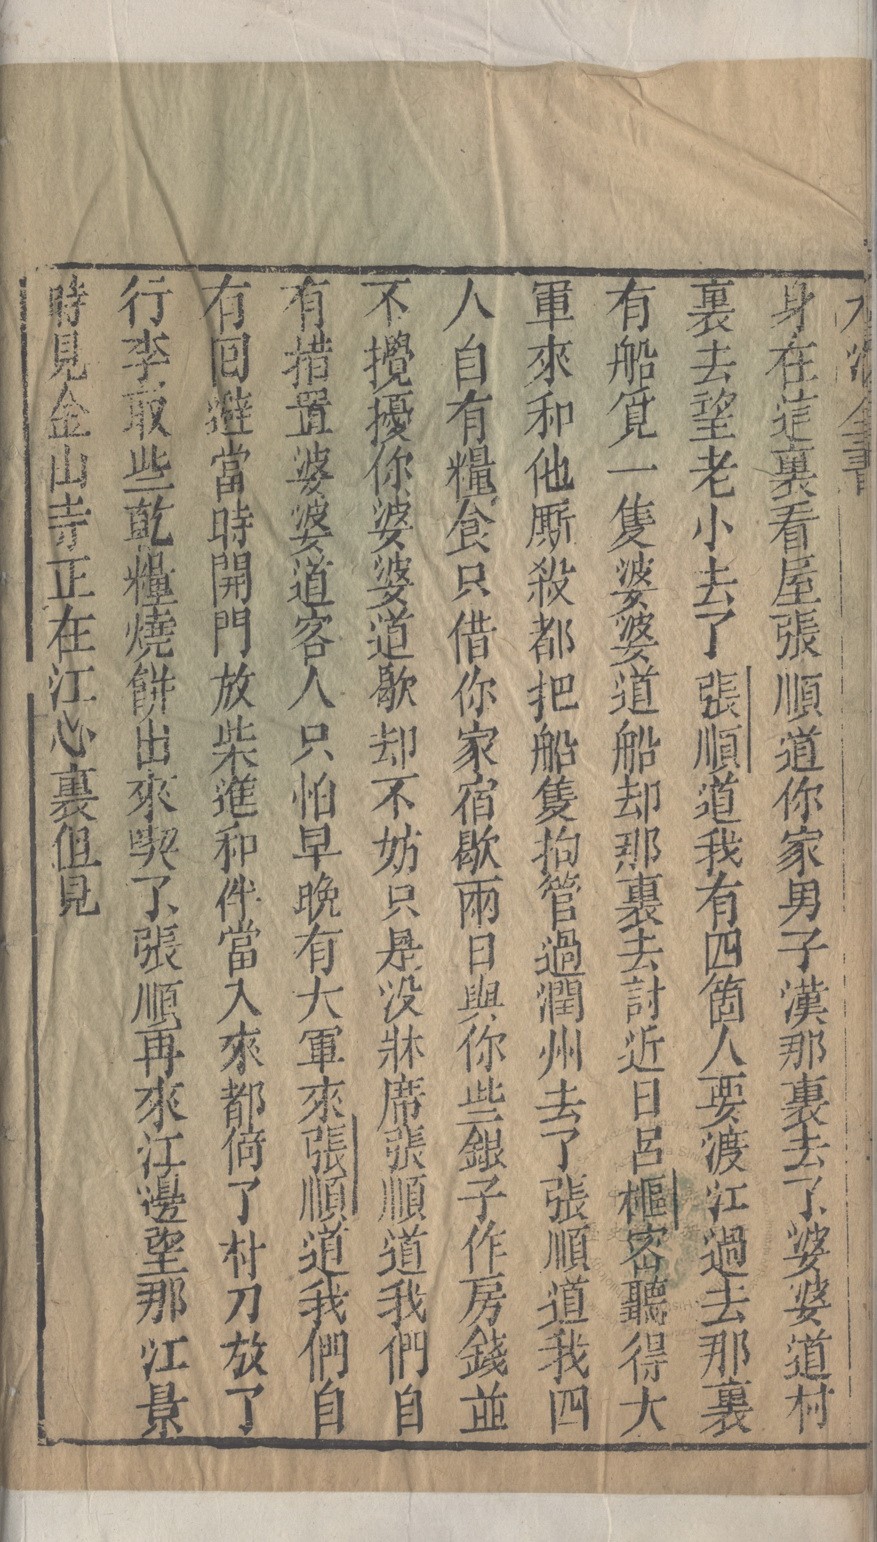 水滸全書
身在這裏看屋張順道你家男子漢那裏去了婆婆道村
裏去望老小去了張順道我有四箇人要渡江過去那裏
有船覓一隻婆婆道船却那裏去討近日呂樞密聽得大
軍來和他厮殺都把船隻拘管過潤州去了張順道我四
人自有糧食只借你家宿歇兩日與你些銀子作房錢並
不攪擾你婆婆道歇却不妨只是没牀席張順道我們自
有措置婆婆道客人只怕早晚有大軍來張順道我們自
有回避當時開門放柴進和伴當入來都倚了朴刀放了
行李取些乾糧燒餅出來喫了張順再來江邊望那江景
時見金山寺正在江心裏但見